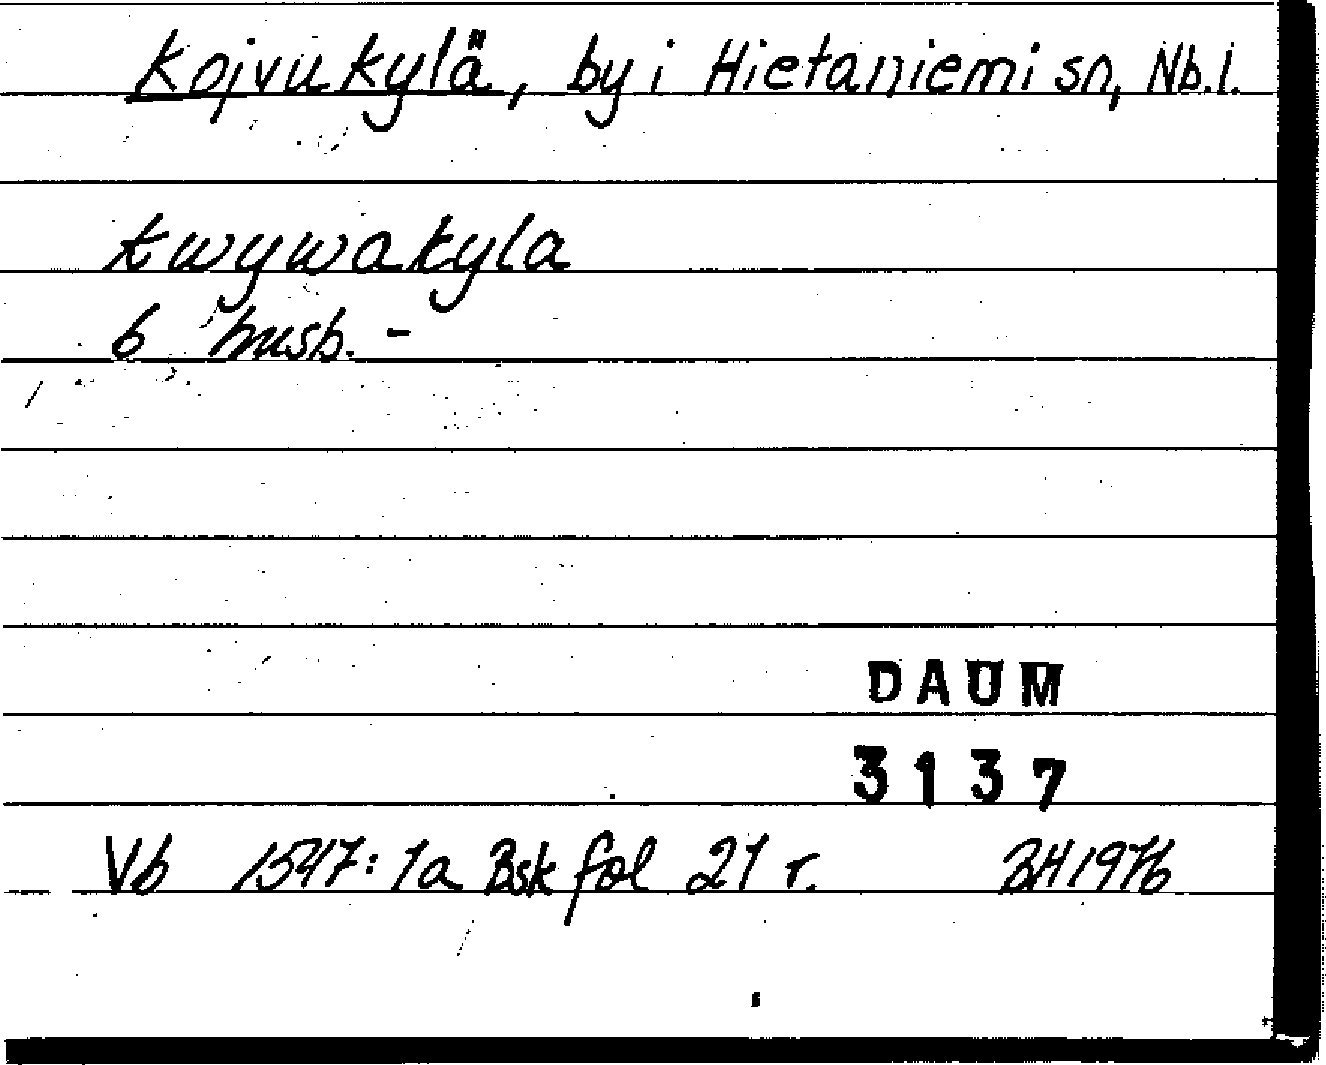 Koivukylä, by i Hietaniemi sn, Nb.l.
kwywakyla
6 husb. -
DAUM
3137
Vb 1547:1a Bsk fol 21 r. BH1976